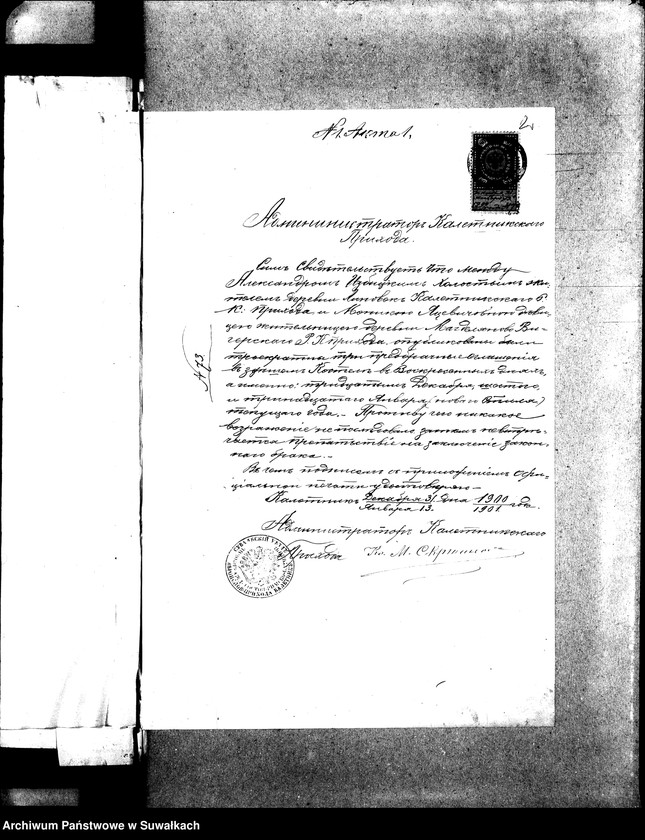 2.
№1. Акта 1,
Администраторъ Калетникскаго
Прихода.
Симъ Свидѣтельствуетъ что между
Александромъ холостымъ жи-
телемъ деревни Калетникскаго Р.
К. Прихода и Моникою дѣви-
цею жительницею деревни Ви-
герскаго Р. К. Прихода, опубликованы были
троекратно три предбрачные оглашенія
въ здѣшнемъ Костелѣ въ Воскресенныя дни,
а именно: тридцатаго Декабря, шестаго
и тринадцатаго Января (новаго Стиля)
текущаго года. Противу чего никакое
возраженіе не послѣдовало затѣмъ не встрѣ-
чается препятствіе на заключеніе закон-
наго брака.
Въ чемъ подписомъ съ приложеніемъ оффи-
ціальной печати удостовѣряю
Калетникъ Декабря 31 дня 1900 года.
Января 13. 1901
Администраторъ Калетникскаго
Прихода Кс. М.
№ 73
Archiwum Państwowe w Suwałkach